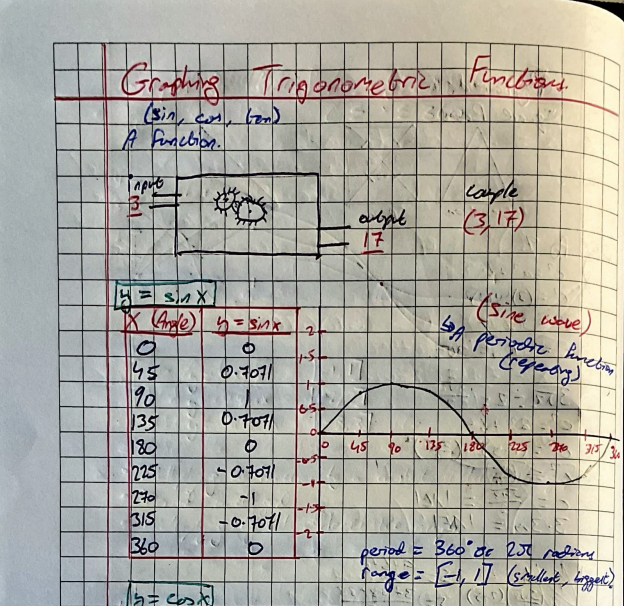 Graphing Trigonometric Functions.
(sin, cos, tan)
A function.
input
3
output
17
couple
(3,17)
y = sin x
X (Angle) y = sin x
0 0
45 0.7071
90 1
135 0.7071
180 0
225 -0.7071
270 -1
315 -0.7071
360 0
(Sine wave)
↳A periodic function
(repeating)
2
1.5
1
0.5
0
-0.5
-1
-1.5
-2
0 45 90 135 180 225 270 315 360
period = 360° or 2π radians
range = [-1, 1] (smallest, biggest)
y = cos x